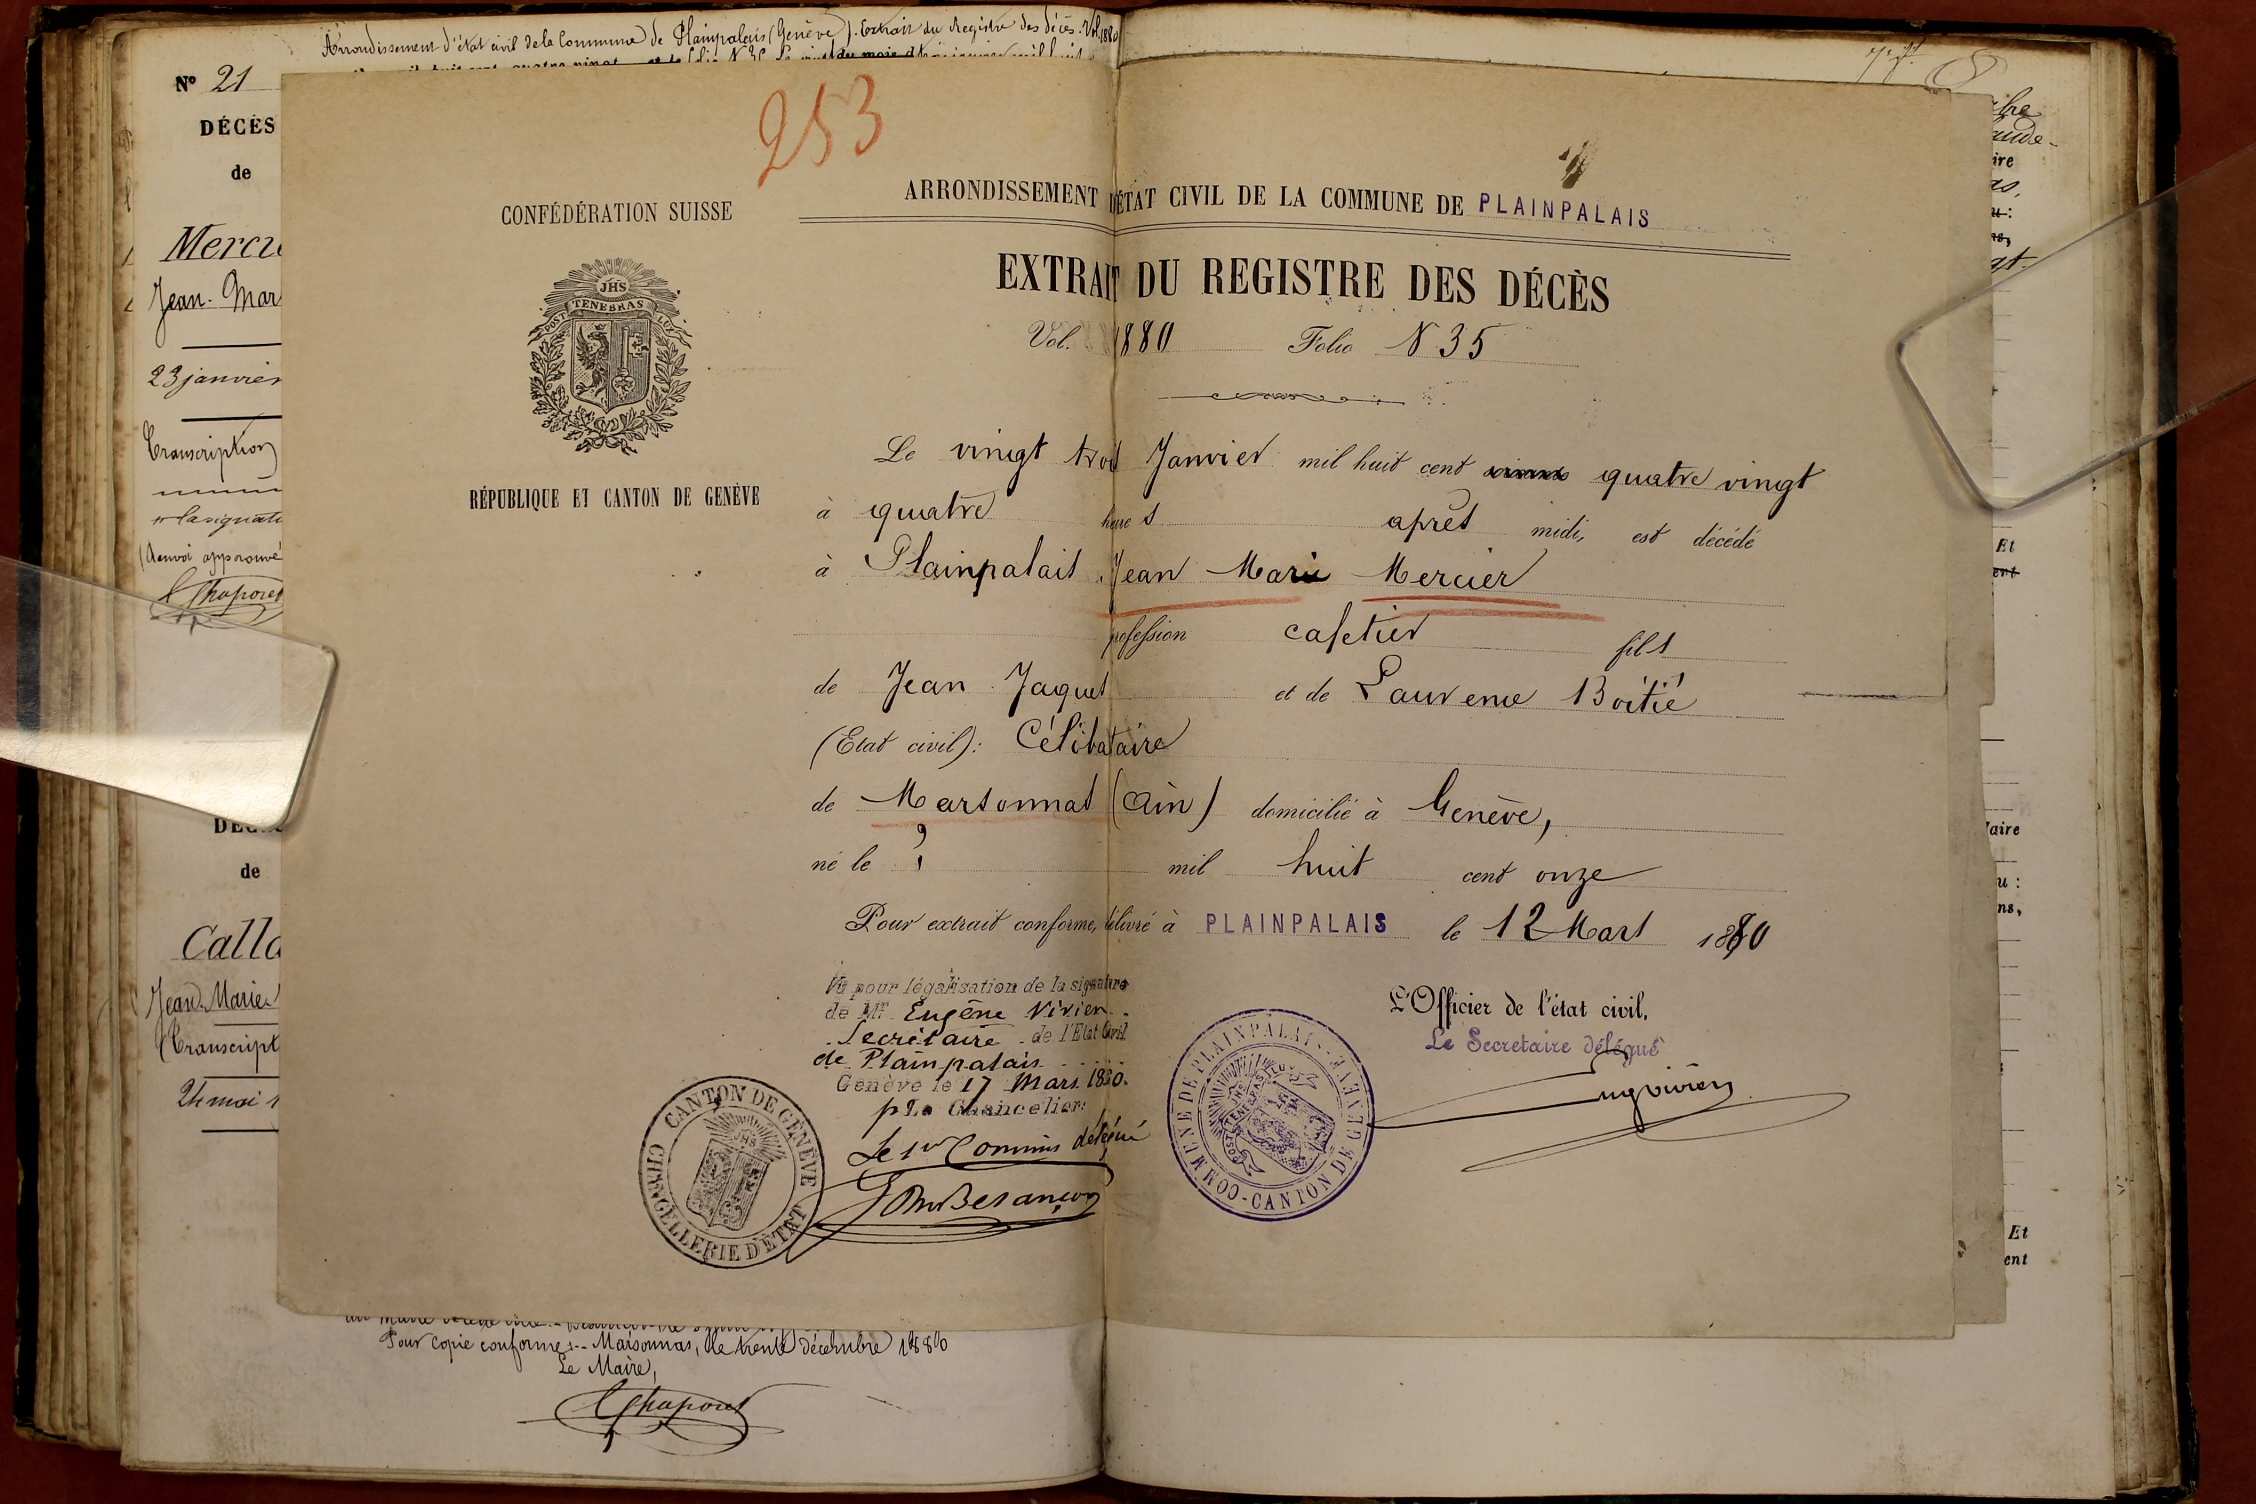 Arrondissement d'état civil de la Commune de Plainpalais (Genève). Extrait du Registre des décès. Vol. 1880
N° 21
DÉCÈS
de
Mercie
Jean-Mar
23 janvier
Transcription
+ la signatu
(Renvoi approuvé
Chaporel
DÉC
de
Calla
Jean-Marie
(Transcript
24 mai 1
253
CONFÉDÉRATION SUISSE
JHS
POST TENEBRAS LUX
RÉPUBLIQUE ET CANTON DE GENÈVE
ARRONDISSEMENT D'ÉTAT CIVIL DE LA COMMUNE DE PLAINPALAIS
EXTRAIT DU REGISTRE DES DÉCÈS
Vol. 1880 Folio N 35
Le vingt trois Janvier mil huit cent quatre vingt
à quatre heures après midi, est décédé
à Plainpalais Jean Marie Mercier
profession cafetier fils
de Jean Jaques et de Laurence Boitié
(Etat civil): Célibataire
de Marsonnas (Ain) domicilié à Genève,
né le ? mil huit cent onze
Pour extrait conforme, délivré à PLAINPALAIS le 12 Mars 1880
Vu pour légalisation de la signature
de Mr Eugène Vivien
Secrétaire de l'Etat Civil
de Plainpalais
Genève le 17 Mars 1880.
p Le Chancelier:
Le 1er Commis délégué
Besançon
CANTON DE GENÈVE
CHANCELLERIE D'ÉTAT
L'Officier de l'état civil,
Le Secretaire délégué
Eug vivien
COMMUNE DE PLAINPALAIS - CANTON DE GENÈVE
POST TENEBRAS LUX
Pour copie conforme:-- Marsonnas, le trente décembre 1880
Le Maire,
Chaporel
ibre
aude-
ire
as,
u :
ns,
gt
Et
ent
Maire
u :
ns,
Et
ent